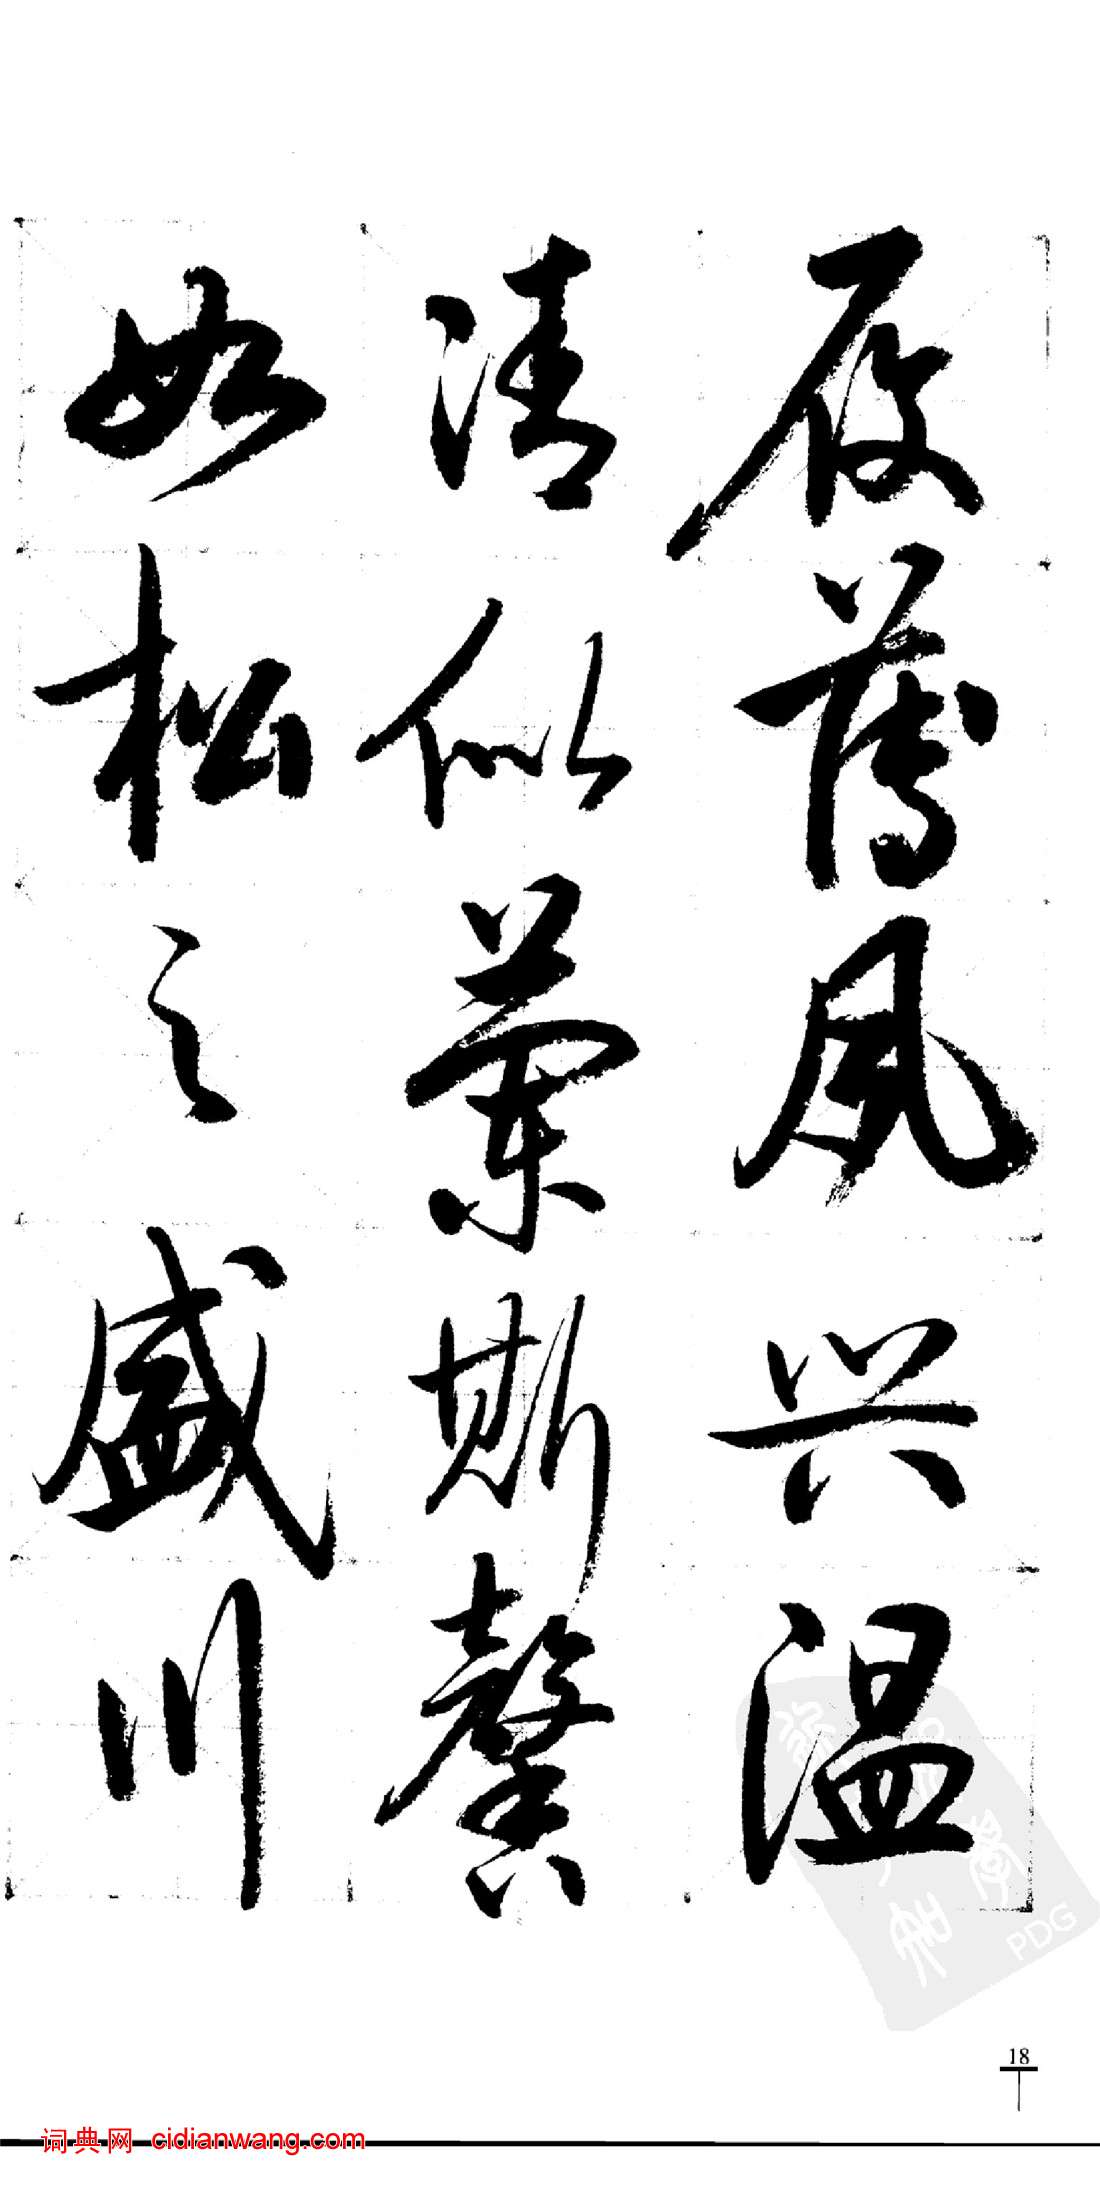 履薄夙興温
清似蘭斯馨
如松之盛川
18
词典网 cidianwang.com
PDG